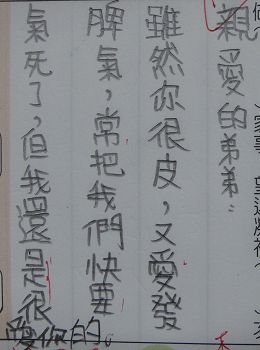 親愛的弟弟：
雖然你很皮，又愛發
脾氣，常把我們快要
氣死了，但我還是很
愛你的。